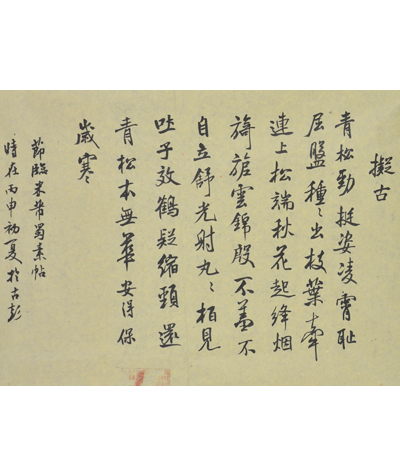 擬古
青松勁挺姿凌霄耻
屈盤種〻出枝葉牽
連上松端秋花起絳烟
旖旎雲錦殷不羞不
自立舒光射丸〻柏見
吐子效鶴疑縮頸還
青松本無華安得保
歲寒
節臨米芾蜀素帖
時在丙申初夏於古彭